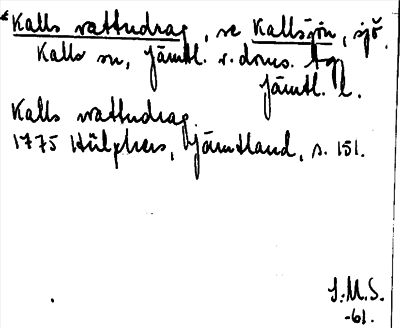 *Kalls vattudrag, se Kallsjön, sjö.
Kalls sn, Jämtl. v. doms. tg
Jämtl. l.
Kalls vattudrag.
1775 Hülphers, Jämtland, s. 151.
S.M.S.
-61.